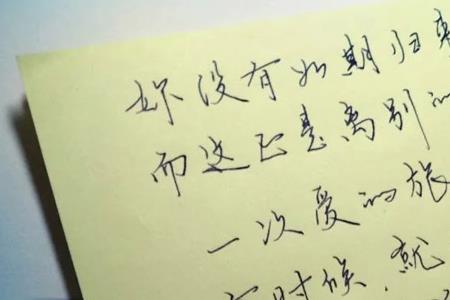 妳没有如期归
而这正是离别的
一次爱的旅
有时候,就